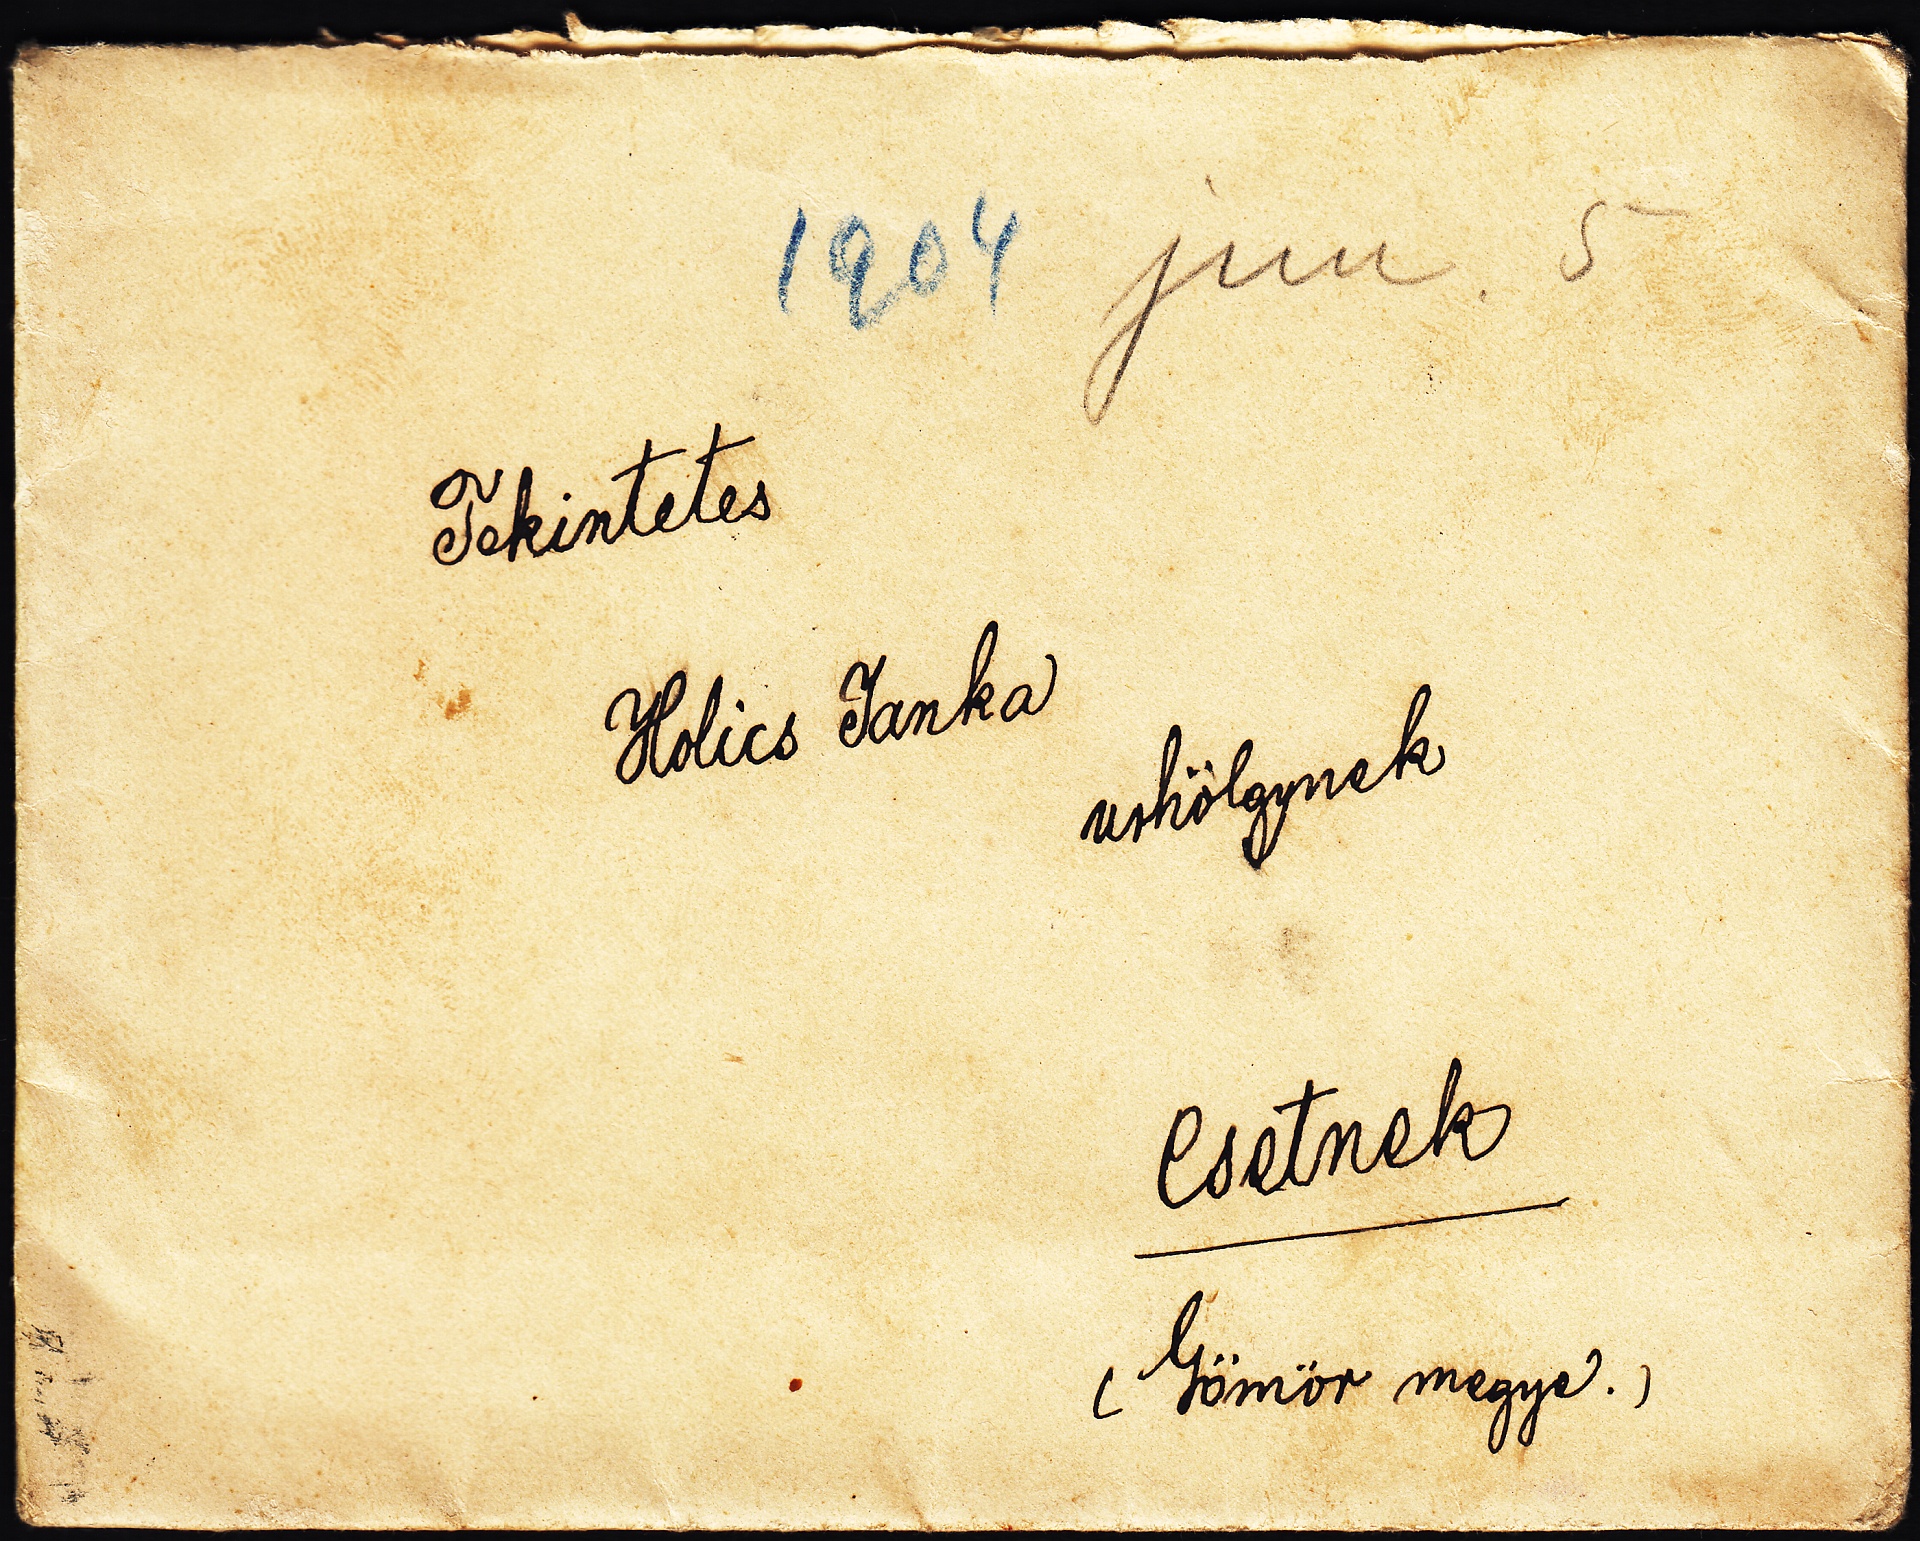 1904 jun. 5
Tekintetes
Holics Janka
urhölgynek
Csetnek
(Gömör megye.)